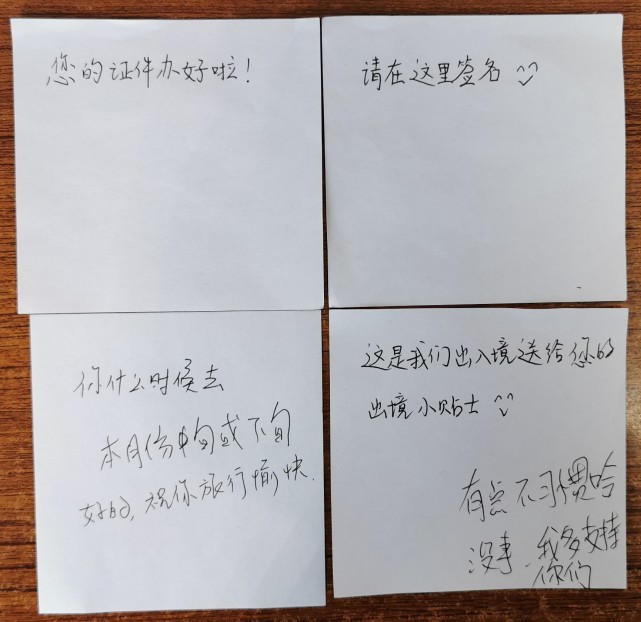 您的证件办好啦！
请在这里签名
你什么时候去
本月份中旬或下旬
好的，祝你旅行愉快.
这是我们出入境送给您的
出境小贴士
有点不习惯哈
没事.我多支持
你们